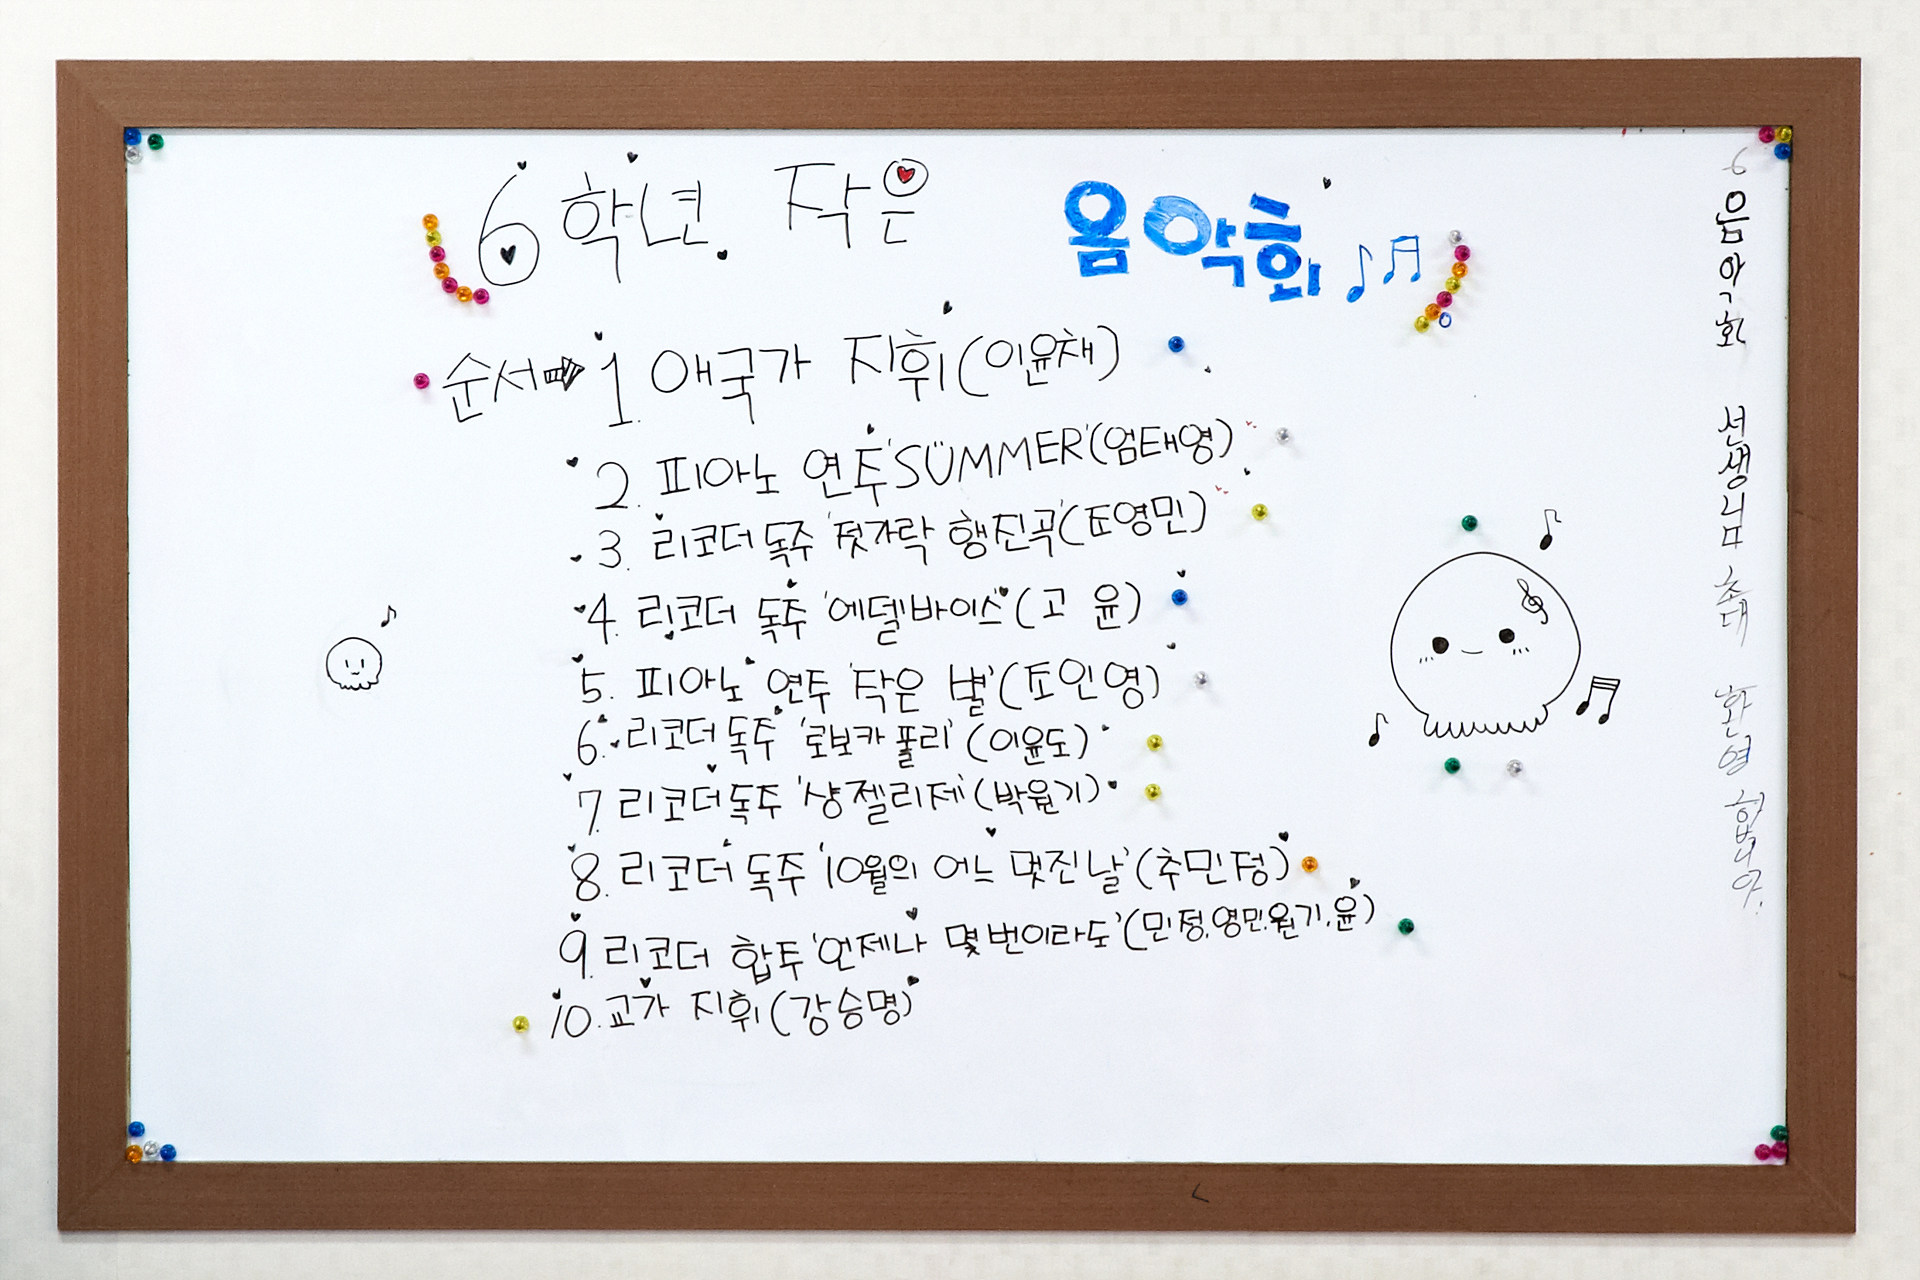 6학년 작은 음악회
순서➡ 1. 애국가 지휘(이윤채)
2. 피아노 연주 'SUMMER'(엄태영)
3. 리코더 독주 '젓가락 행진곡'(조영민)
4. 리코더 독주 '에델바이스'(고 윤)
5. 피아노 연주 '작은 별'(조인영)
6. 리코더 독주 '로보카 폴리'(이윤도)
7. 리코더 독주 '샹젤리제'(박원기)
8. 리코더 독주 '10월의 어느 멋진 날'(추민정)
9. 리코더 합주 '언제나 몇 번이라도'(민정,영민,원기,윤)
10. 교가 지휘(강승명)
6 음악회 선생님 초대 환영 합니다.